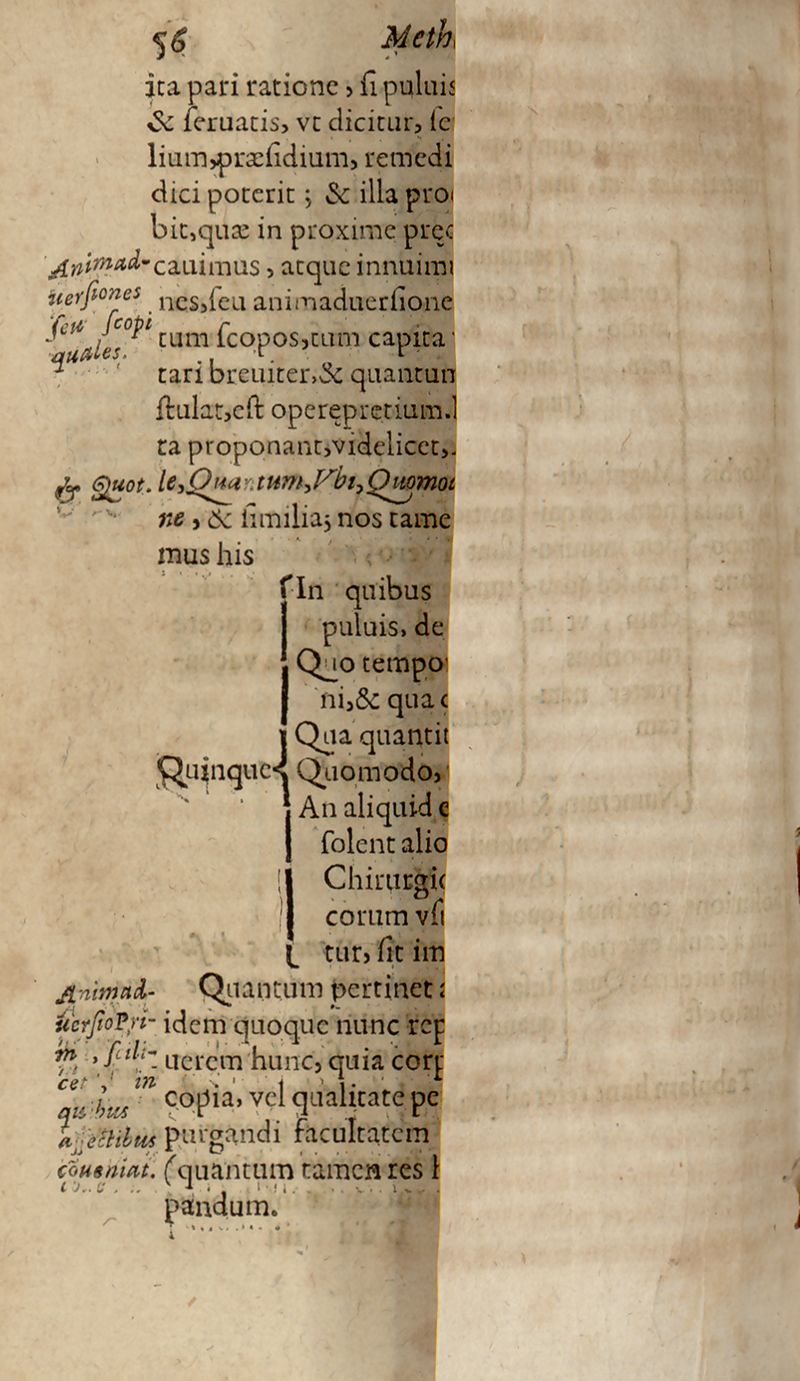 56 Meth
ita pari ratione, si puluis
& seruatis, vt dicitur, se
lium, præsidium, remedi
dici poterit; & illa pro
bit, quæ in proxime pręc
Animad- cauimus, atque innuim
uersiones nes, seu animaduersione
seu scopi tum scopos, tum capita
quales. tari breuiter, & quantun
stulat, est operępretium.
ta proponant, videlicet,
& Quot. le, Quantum, Vbi, Quomo
ne, & similia; nos tame
mus his
In quibus
puluis, de
Quo tempo
ni, & qua c
Qua quantit
Quinque Quomodo,
An aliquid e
solent alio
Chirurgi
corum vsi
tur, sit im
Animad- Quantum pertinet
uersio Pri- idem quoque nunc rep
m, scili- uerem hunc, quia corp
cet, in
quibus copia, vel qualitate pe
affectibus purgandi facultatem
coueniat. (quantum tamen res
pandum.